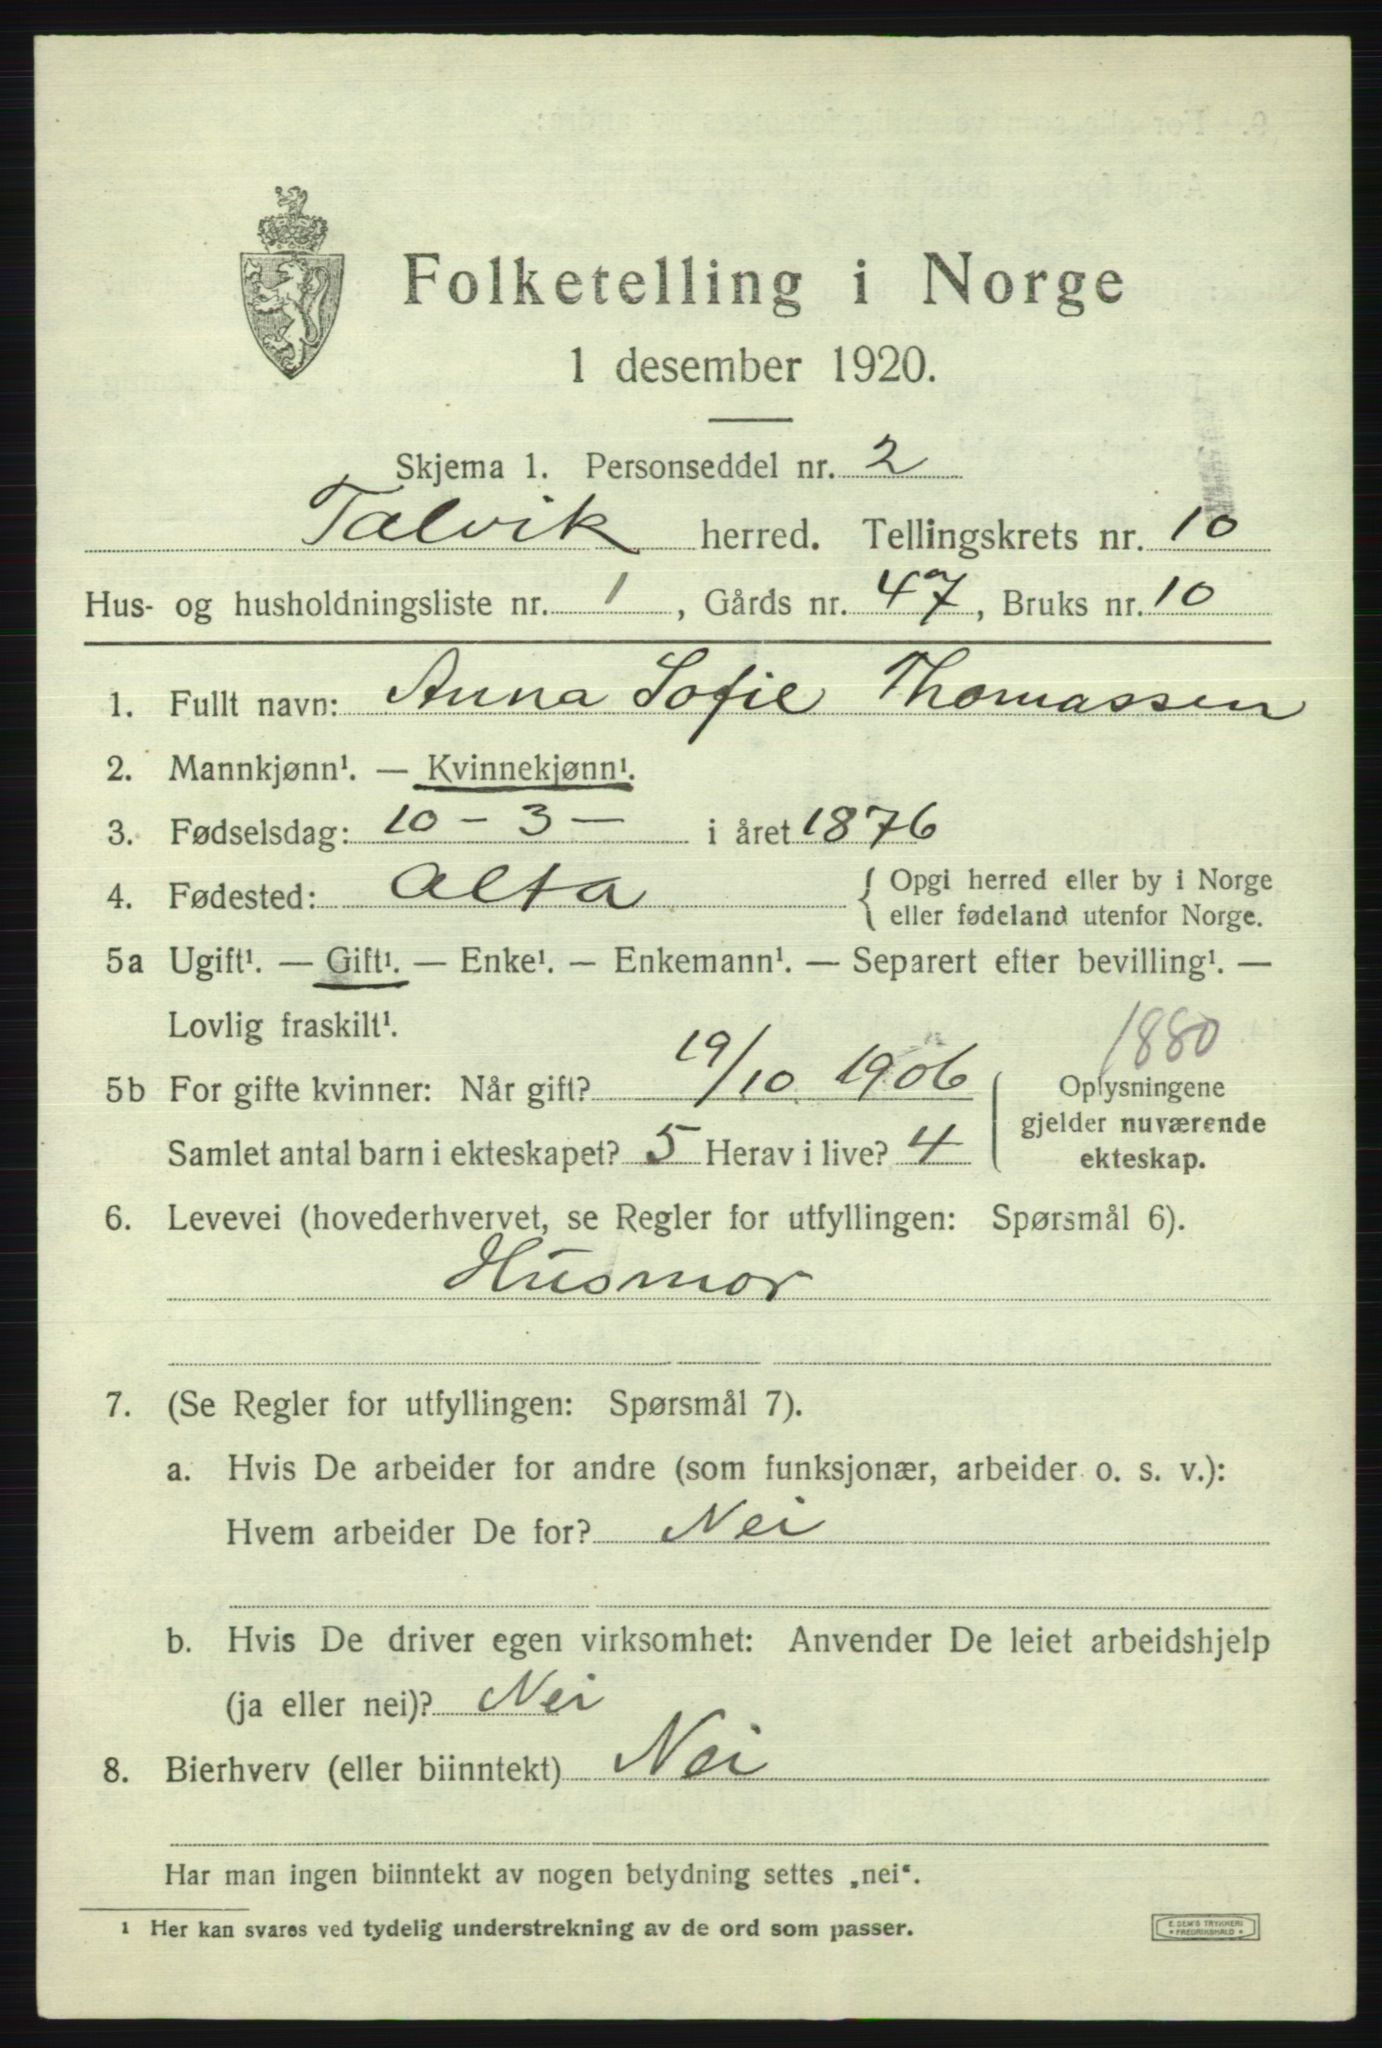 Folketelling i Norge
1 desember 1920.
Skjema 1. Personseddel nr. 2
Talvik herred. Tellingskrets nr. 10
Hus- og husholdningsliste nr. 1, Gårds nr. 47, Bruks nr. 10
1. Fullt navn: Anna Sofie Thomassen
2. Mannkjønn¹. — Kvinnekjønn¹.
3. Fødselsdag: 10 - 3 - i året 1876
4. Fødested: Alta { Opgi herred eller by i Norge
eller fødeland utenfor Norge.
5a Ugift¹. — Gift¹. — Enke¹. — Enkemann¹. — Separert efter bevilling¹. —
Lovlig fraskilt¹.
1880
5b For gifte kvinner: Når gift? 19/10 1906 ( Oplysningene
gjelder nuværende
Samlet antal barn i ekteskapet? 5 Herav i live? 4 ekteskap.
6. Levevei (hovederhvervet, se Regler for utfyllingen: Spørsmål 6).
Husmor
7. (Se Regler for utfyllingen: Spørsmål 7).
a. Hvis De arbeider for andre (som funksjonær, arbeider o. s. v.):
Hvem arbeider De for? Nei
b. Hvis De driver egen virksomhet: Anvender De leiet arbeidshjelp
(ja eller nei)? Nei
8. Bierhverv (eller biinntekt) Nei
Har man ingen biinntekt av nogen betydning settes „nei“.
¹ Her kan svares ved tydelig understrekning av de ord som passer.
E. SEM'S TRYKKERI
* FREDRIKSHALD *